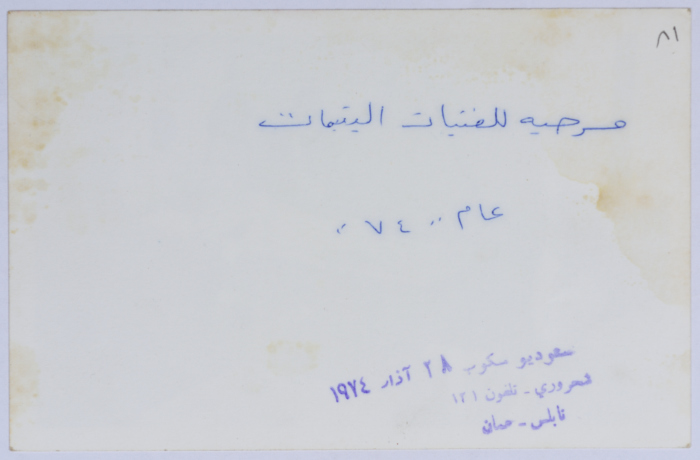 ٨١
مسرحيه للفتيات اليتيمات
عام " ٧٤ "
ستوديو سكوب ٢٨ آذار ١٩٧٤
تلفون ١٢١
نابلس - عمان